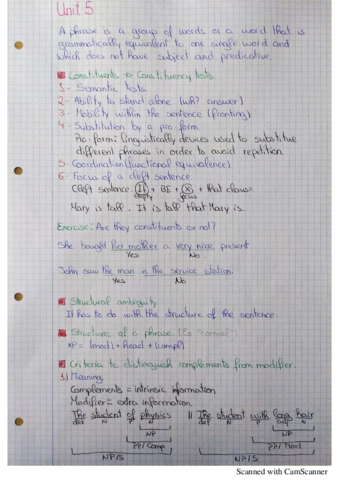 Unit 5
A phrase is a group of words or a word that is
grammatically equivalent to one single word and
which does not have subject and predicative.
Constituents → Constituency tests
1- Semantic tests.
2- Ability to stand alone (wh? answer)
3- Mobility within the sentence (fronting)
4- Substitution by a pro-form
Pro-form: linguistically devices used to substitue
different phrases in order to avoid repetition
5- Coordination (functional equivalence)
6- Focus of a cleft sentence
Cleft sentence: (It) + BE + (X) + that clause.
empty focus
Mary is tall. It is tall that Mary is.
Exercise: Are they constituents or not?
She bought her mother a very nice present
Yes No
John saw the man in the service station.
Yes No
Structural ambiguity
It has to do with the structure of the sentence.
Structure of a phrase. (lo "normal")
XP = (mod) + head + (compl)
Criteria to distinguish complements from modifier.
1) Meaning
Complements = intrinsic information
Modifier = extra information.
The student of physics || The student with long hair
det N P N det N P adj N
NP NP
PP/Comp PP/Mod
NP/S NP/S
Scanned with CamScanner